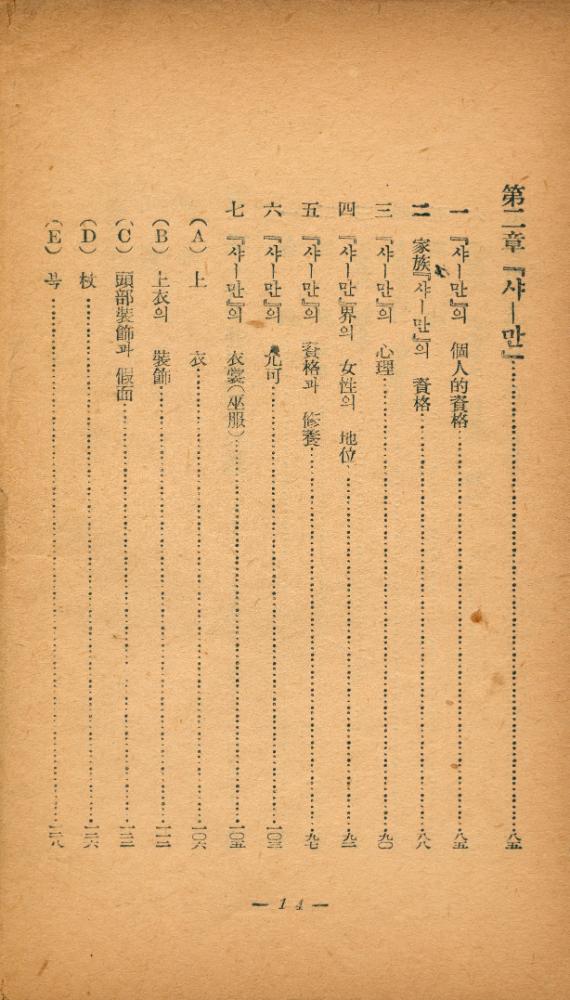 第二章 『샤―만』……八五
一 『샤―만』의 個人的資格……八五
二 家族『샤―만』의 資格……八八
三 『샤―만』의 心理……九〇
四 『샤―만』界의 女性의 地位……九二
五 『샤―만』의 資格과 修養……九七
六 『샤―만』의 允可……一〇三
七 『샤―만』의 衣裳(巫服)……一〇五
(A) 上 衣……一〇六
(B) 上衣의 裝飾……一一二
(C) 頭部裝飾과 假面……一二二
(D) 杖……一二六
(E) 북……一二八
— 14 —